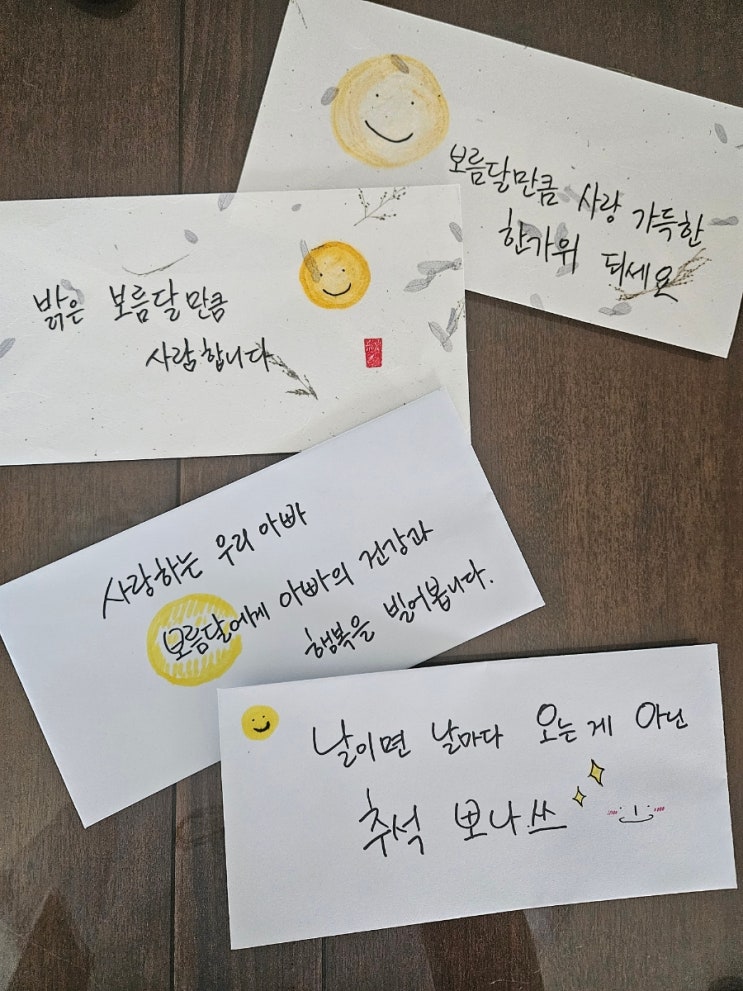 보름달만큼 사랑 가득한
한가위 되세요
밝은 보름달만큼
사랑합니다
사랑하는 우리 아빠
보름달에게 아빠의 건강과
행복을 빌어봅니다.
날이면 날마다 오는게 아닌
추석 뽀나쓰